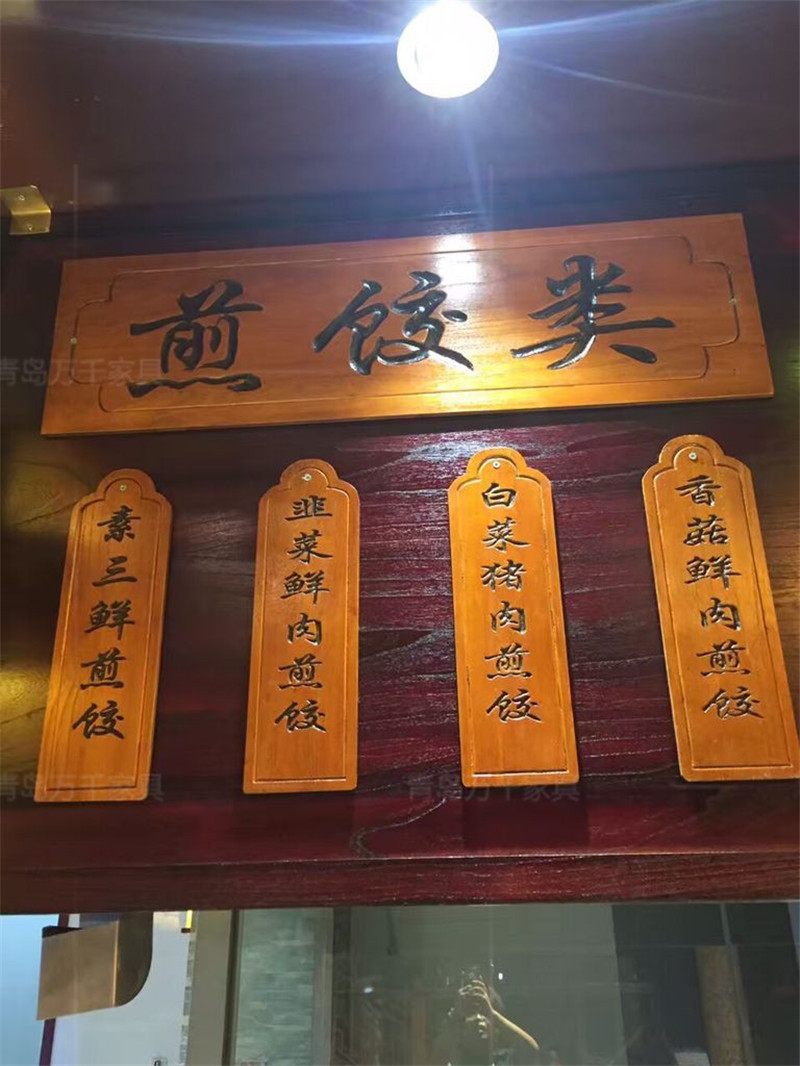 煎饺类
素三鲜煎饺
韭菜鲜肉煎饺
白菜猪肉煎饺
香菇鲜肉煎饺
青岛万千家具
青岛万千家具
青岛万千家具